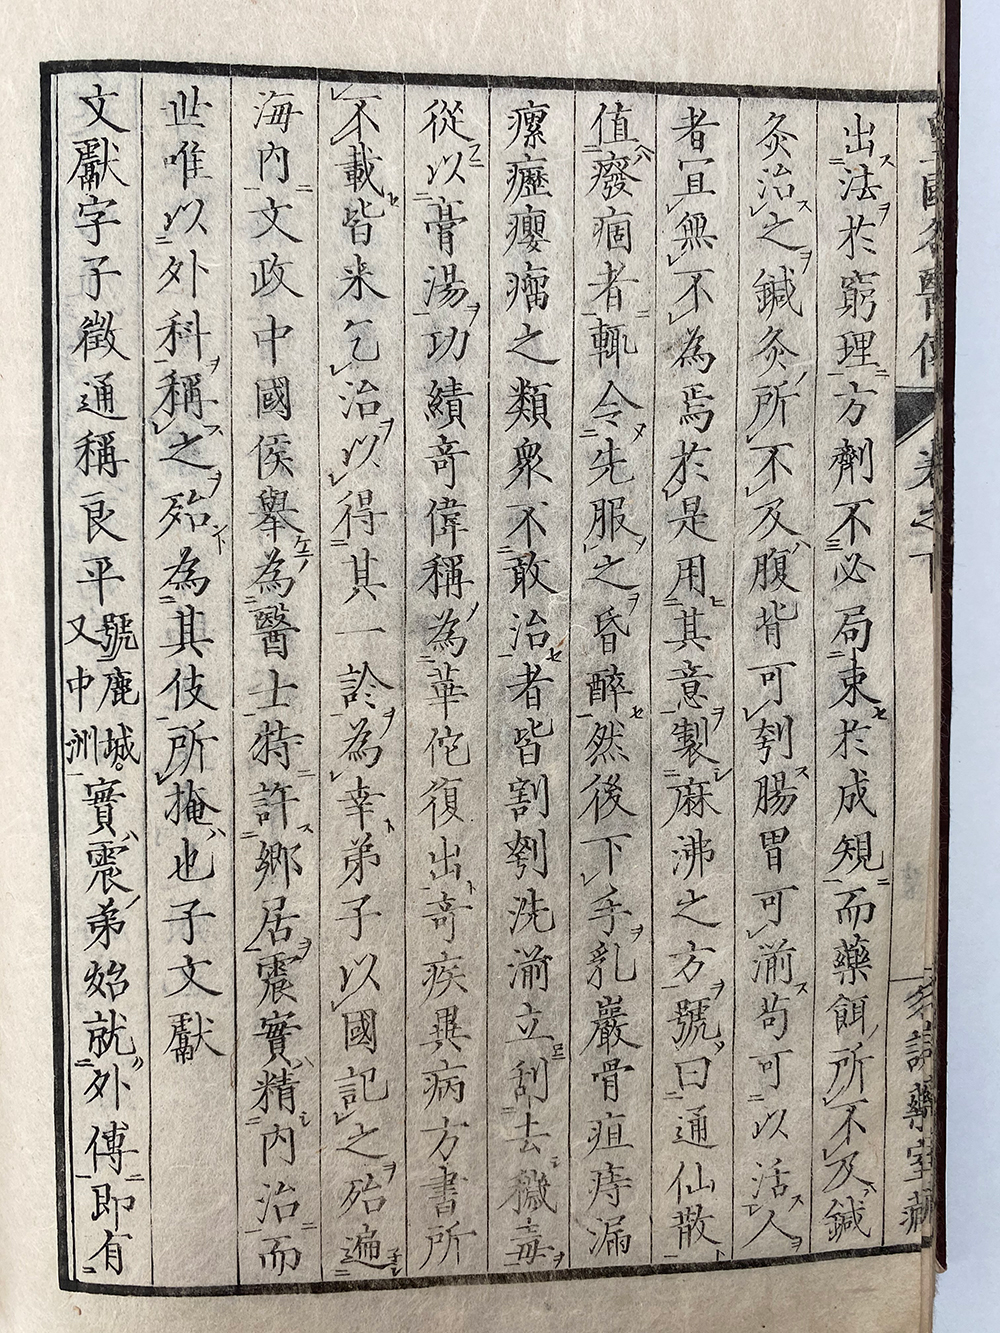 皇國名醫傳 卷之下
出法於窮理方劑不必局束於成規而藥餌所不及鍼
灸治之鍼灸所不及腹背可刳腸胃可湔苟可以活人
者宜無不為焉於是用其意製麻沸之方號曰通仙散
值癈痼者輒令先服之昏醉然後下手乳巖骨疽痔漏
瘰癧癭瘤之類衆不敢治者皆割刳洗湔立刮去穢毒
從以膏湯功績奇偉稱為華佗復出奇疾異病方書所
不載皆來乞治以得其一診為幸弟子以國記之殆遍
海內文政中國侯舉為醫士特許鄉居震實精內治而
世唯以外科稱之殆為其伎所掩也子文獻
文獻字子徵通稱良平號鹿城。又中洲實震弟始就外傅即有